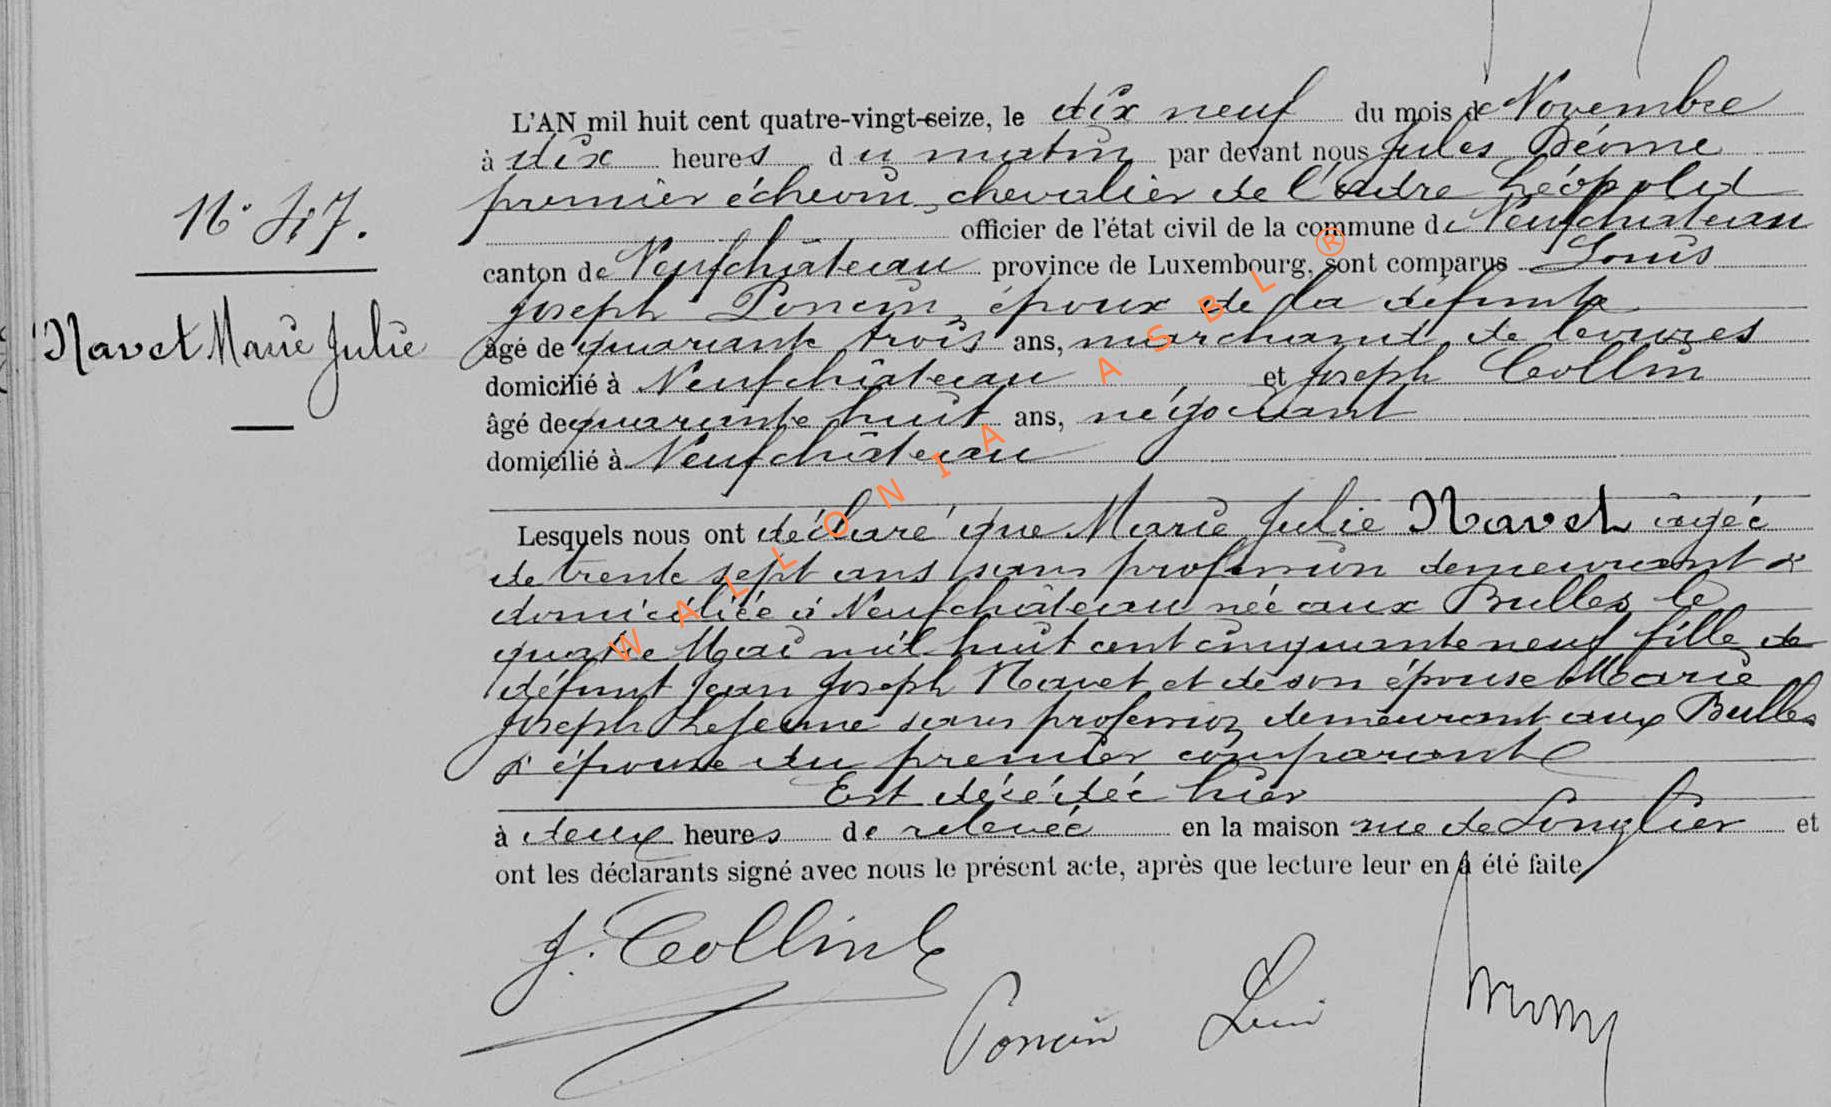 L'AN mil huit cent quatre-vingt-seize, le dix neuf du mois de Novembre
à dix heures du matin par devant nous Jules Déome
premier échevin, chevalier de l'ordre Léopold
officier de l'état civil de la commune de Neufchâteau
canton de Neufchâteau province de Luxembourg, sont comparus Louis
Joseph Poncin, époux de la défunte
âgé de quarante trois ans, marchand de levures
domicilié à Neufchâteau et Joseph Collin
âgé de quarante huit ans, négociant
domicilié à Neufchâteau
N° 47.
Navet Marie Julie
Lesquels nous ont déclaré que Marie Julie Navet âgée
de trente sept ans sans profession demeurant &
domiciliée à Neufchâteau née aux Bulles le
quatre Mai mil huit cent cinquante neuf fille de
défunt Jean Joseph Navet et de son épouse Marie
Joseph Lejeune sans profession demeurant aux Bulles
& épouse du premier comparant
Est décédée hier
à deux heures de relevée en la maison rue de Longlier et
ont les déclarants signé avec nous le présent acte, après que lecture leur en a été faite
J. Collin
Poncin Louis
WALLONIA ASBL ®